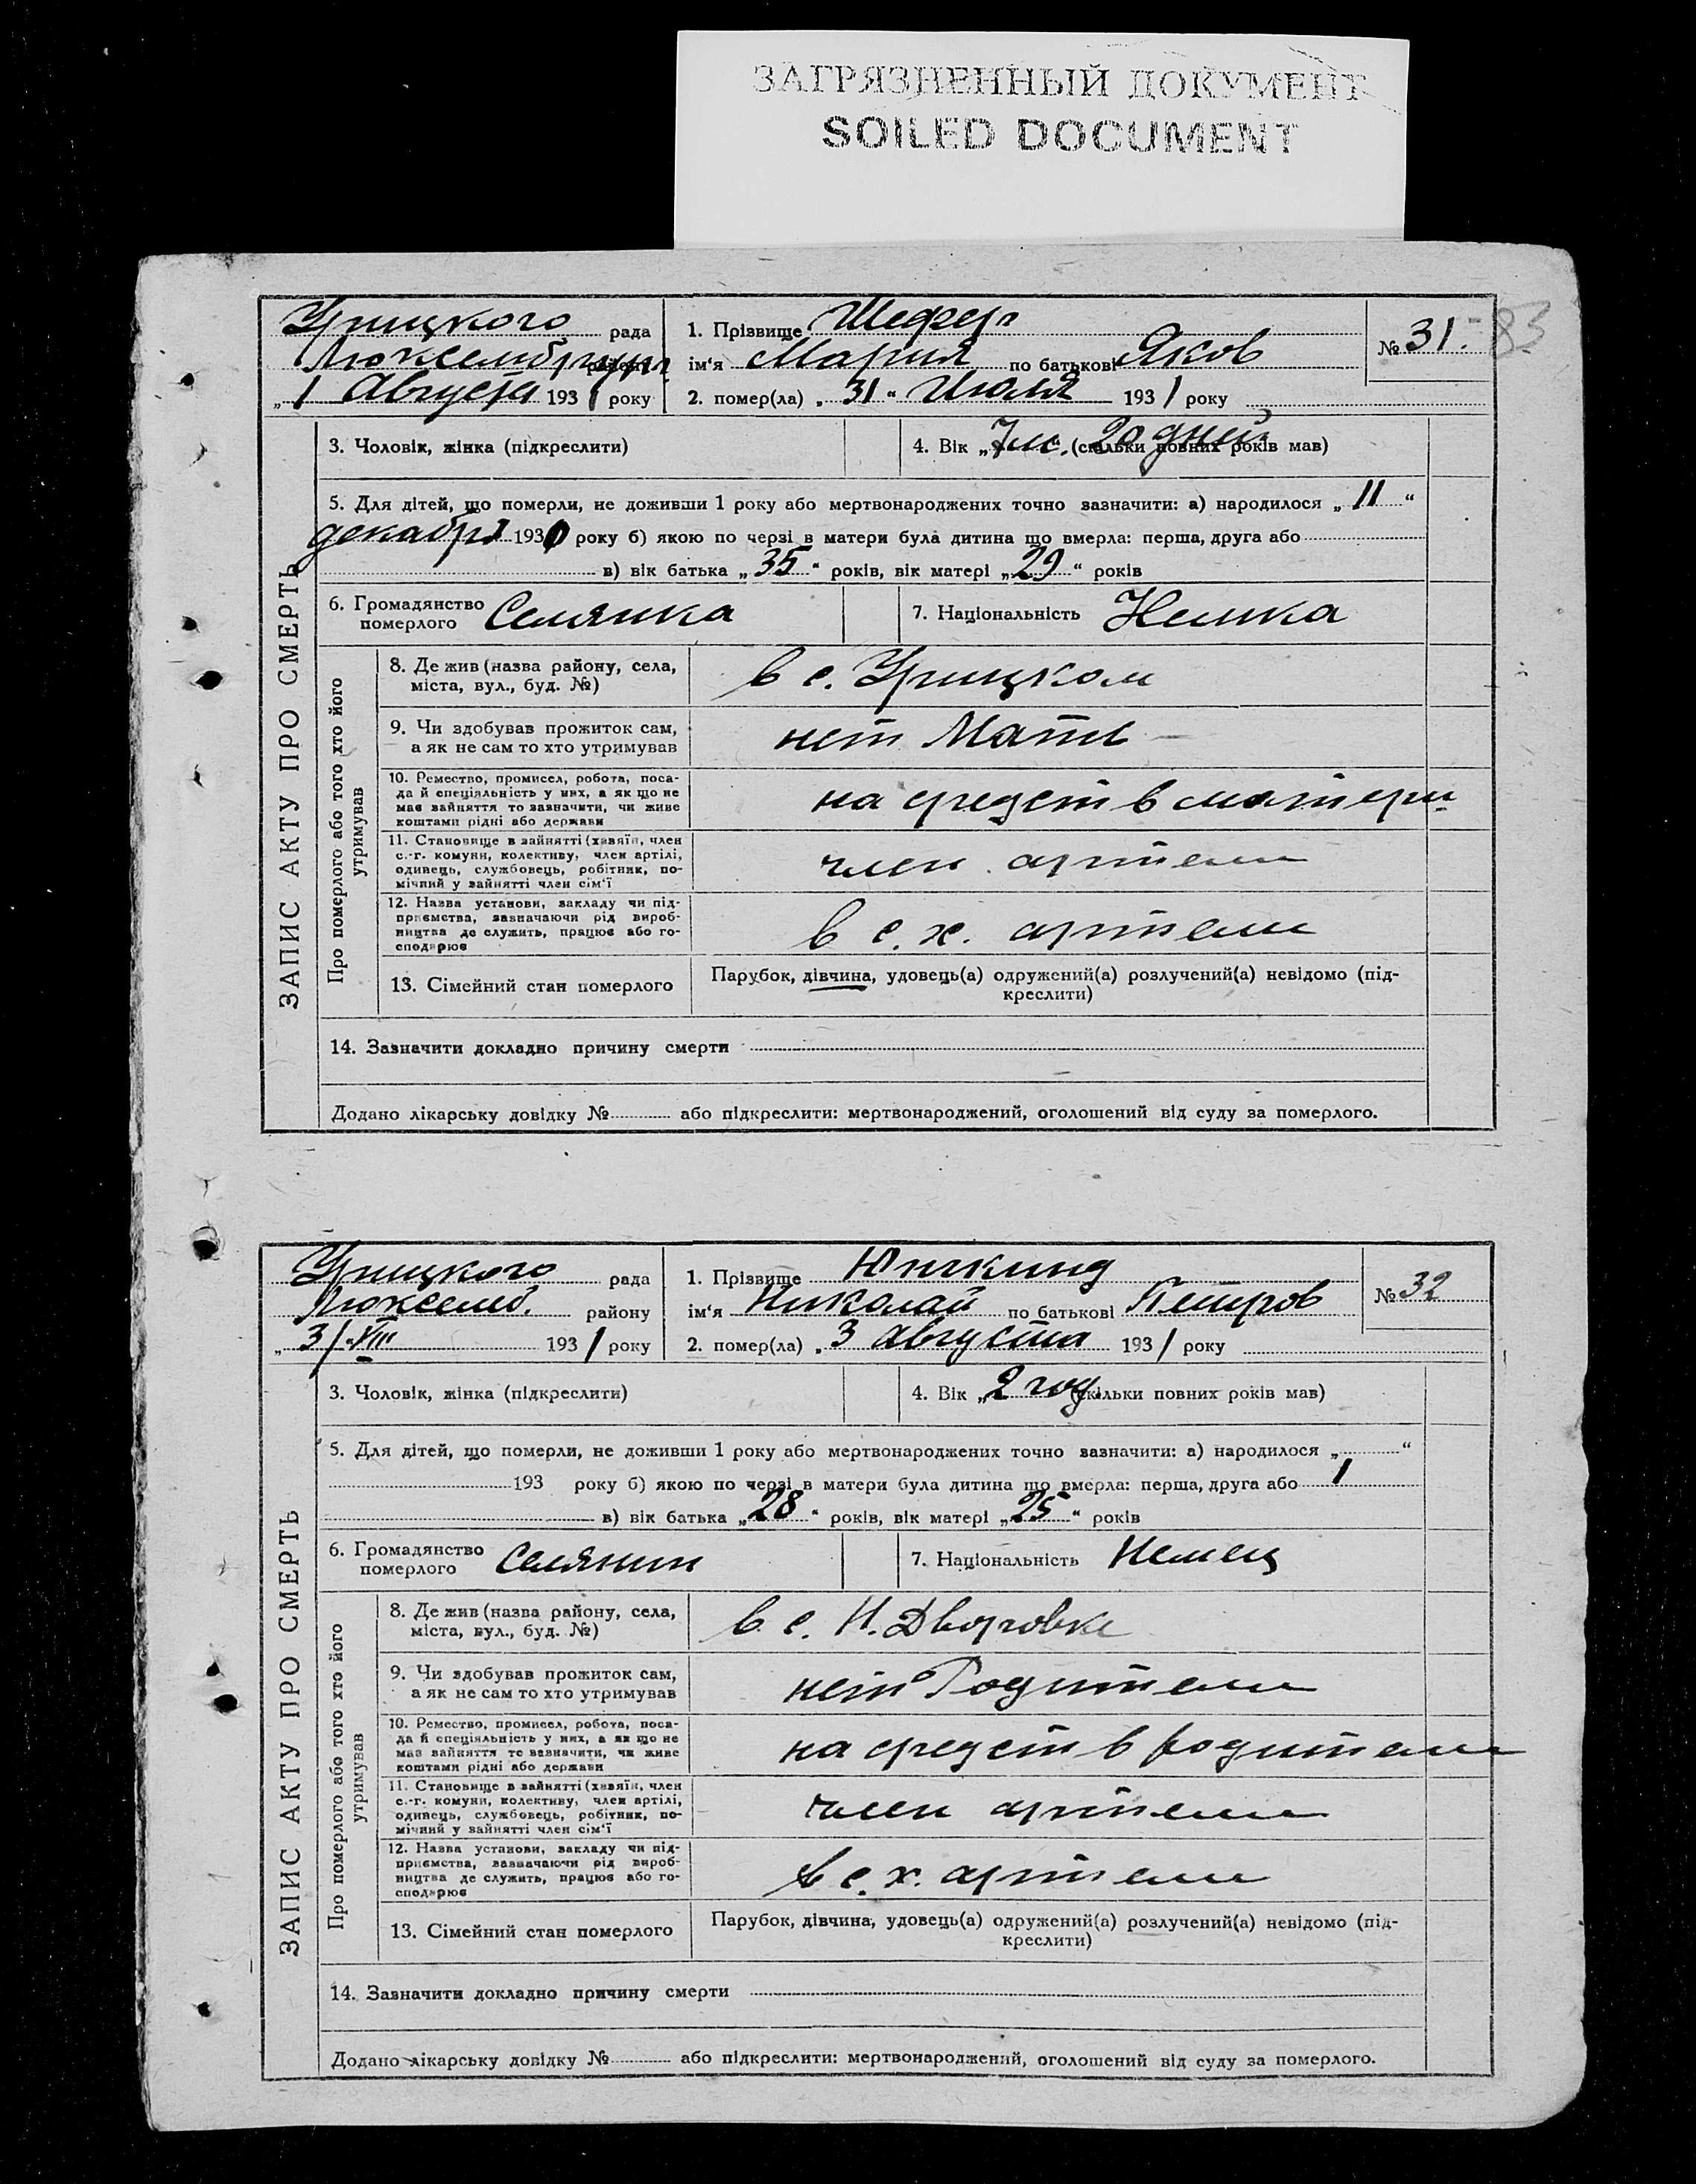 ЗАГРЯЗНЕННЫЙ ДОКУМЕНТ
SOILED DOCUMENT
83
ЗАПИС АКТУ ПРО СМЕРТЬ
Урицкого рада
Люксембург району
„1 Августа 1931 року
1. Прізвище Шефер
ім‘я Мария по батькові Яков
2. помер(ла) „31“ Июля 1931 року
№ 31.
3. Чоловік, жінка (підкреслити)
4. Вік „7 мс. 20 дней (скільки повних років мав)
5. Для дітей, що померли, не доживши 1 року або мертвонароджених точно зазначити: а) народилося „11“
декабря 1930 року б) якою по черзі в матери була дитина що вмерла: перша, друга або
в) вік батька „35“ років, вік матері „29“ років
6. Громадянство померлого Селянка
7. Національність Немка
Про померлого або того хто його утримував
8. Де жив (назва району, села,
міста, вул., буд. №)
в с. Урицком
9. Чи здобував прожиток сам,
а як не сам то хто утримував
нет Мать
10. Ремество, промисел, робота, поса-
да й спеціяльність у них, а як що не
має зайняття то зазначити, чи живе
коштами рідні або держави
на средств матери
11. Становище в зайнятті (хазяїн, член
с.-г. комуни, колективу, член артілі,
одинець, службовець, робітник, по-
мічний у зайнятті член сім‘ї
член артели
12. Назва установи, закладу чи під-
приємства, зазначаючи рід вироб-
ництва де служить, працює або го-
сподарює
в с. х. артели
13. Сімейний стан померлого
Парубок, дівчина, удовець(а) одружений(а) розлучений(а) невідомо (під-
креслити)
14. Зазначити докладно причину смерти
Додано лікарську довідку № або підкреслити: мертвонароджений, оголошений від суду за померлого.
ЗАПИС АКТУ ПРО СМЕРТЬ
Урицкого рада
Люксемб. району
„3/VIII 1931 року
1. Прізвище Юнкинд
ім‘я Николай по батькові Петров
2. помер(ла) „3 августа 1931 року
№ 32
3. Чоловік, жінка (підкреслити)
4. Вік „2 год. (скільки повних років мав)
5. Для дітей, що померли, не доживши 1 року або мертвонароджених точно зазначити: а) народилося „ “
193 року б) якою по черзі в матери була дитина що вмерла: перша, друга або 1
в) вік батька „28“ років, вік матері „25“ років
6. Громадянство померлого селянин
7. Національність Немец
Про померлого або того хто його утримував
8. Де жив (назва району, села,
міста, вул., буд. №)
в с. Н. Дворовке
9. Чи здобував прожиток сам,
а як не сам то хто утримував
нет Родители
10. Ремество, промисел, робота, поса-
да й спеціяльність у них, а як що не
має зайняття то зазначити, чи живе
коштами рідні або держави
на средств родители
11. Становище в зайнятті (хазяїн, член
с.-г. комуни, колективу, член артілі,
одинець, службовець, робітник, по-
мічний у зайнятті член сім‘ї
член артели
12. Назва установи, закладу чи під-
приємства, зазначаючи рід вироб-
ництва де служить, працює або го-
сподарює
в с. х. артели
13. Сімейний стан померлого
Парубок, дівчина, удовець(а) одружений(а) розлучений(а) невідомо (під-
креслити)
14. Зазначити докладно причину смерти
Додано лікарську довідку № або підкреслити: мертвонароджений, оголошений від суду за померлого.